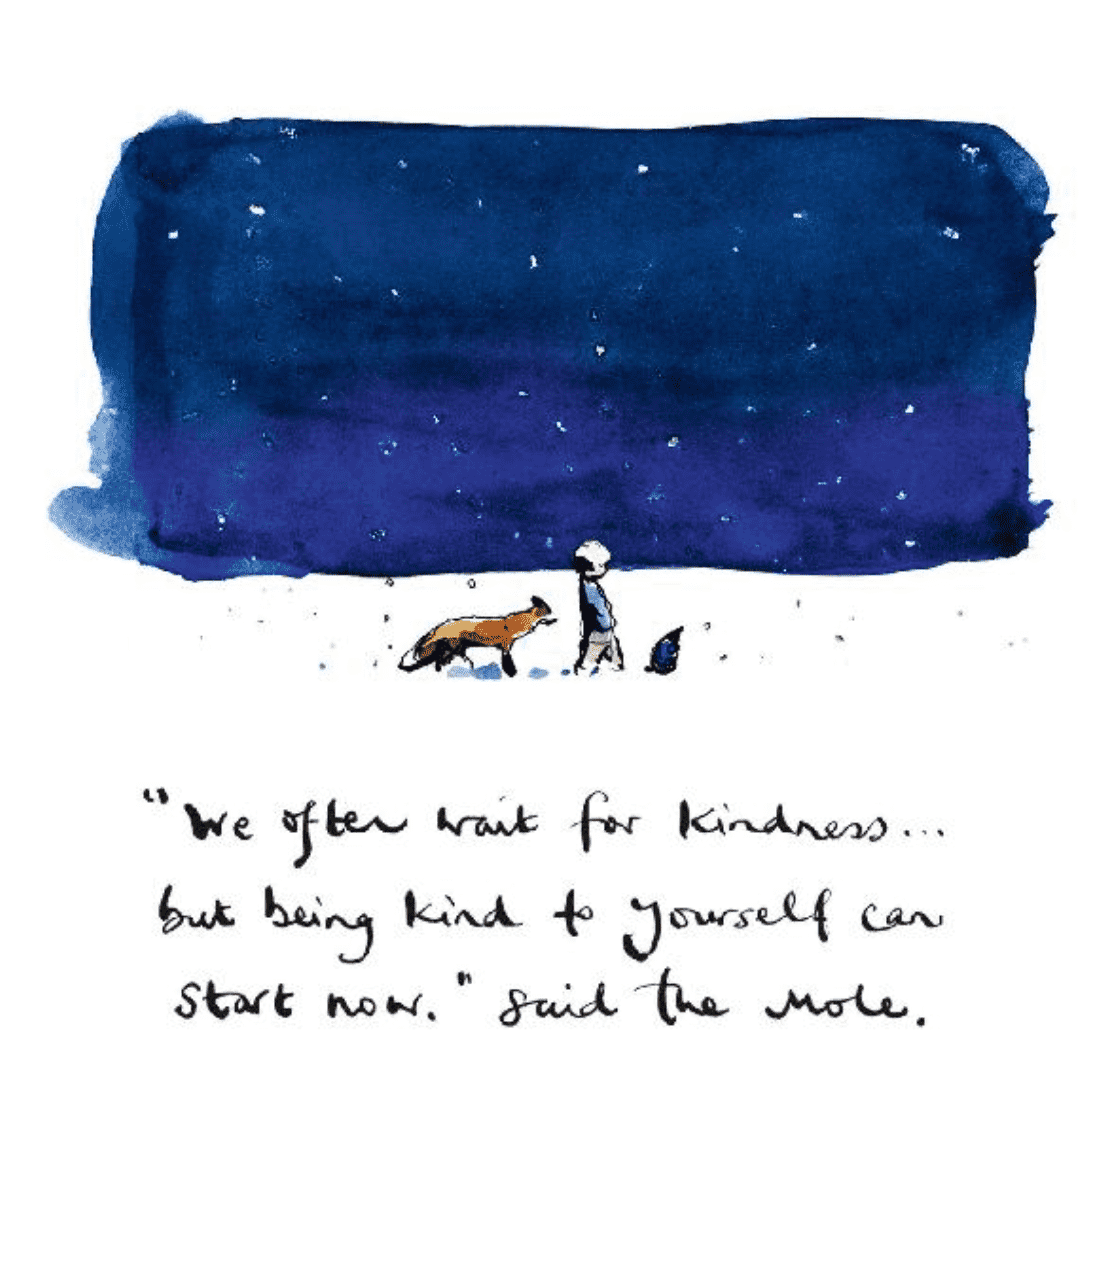 "We often wait for kindness...
but being kind to yourself can
start now." said the mole.